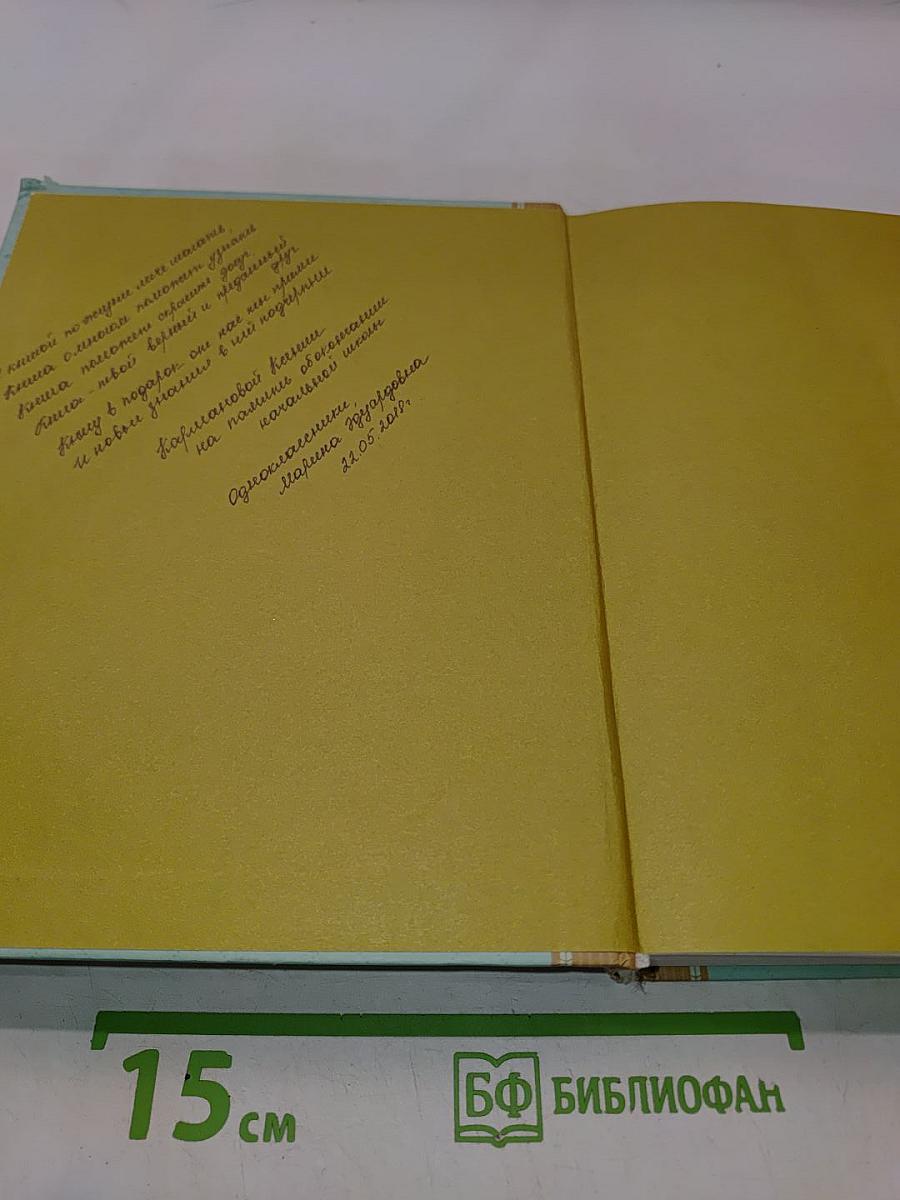 С книгой по жизни легче шагать,
Книга о многом поможет узнать
Книга поможет скрасить досуг
Книга - твой верный и преданный
друг
Книгу в подарок от нас ты прими
И новые знания в ней подчерпни
Кармановой Ксении
на память об окончании
начальной школы
Одноклассники,
Марина Эдуардовна
22.05.2018г.
15 см
БФ БИБЛИОФАН